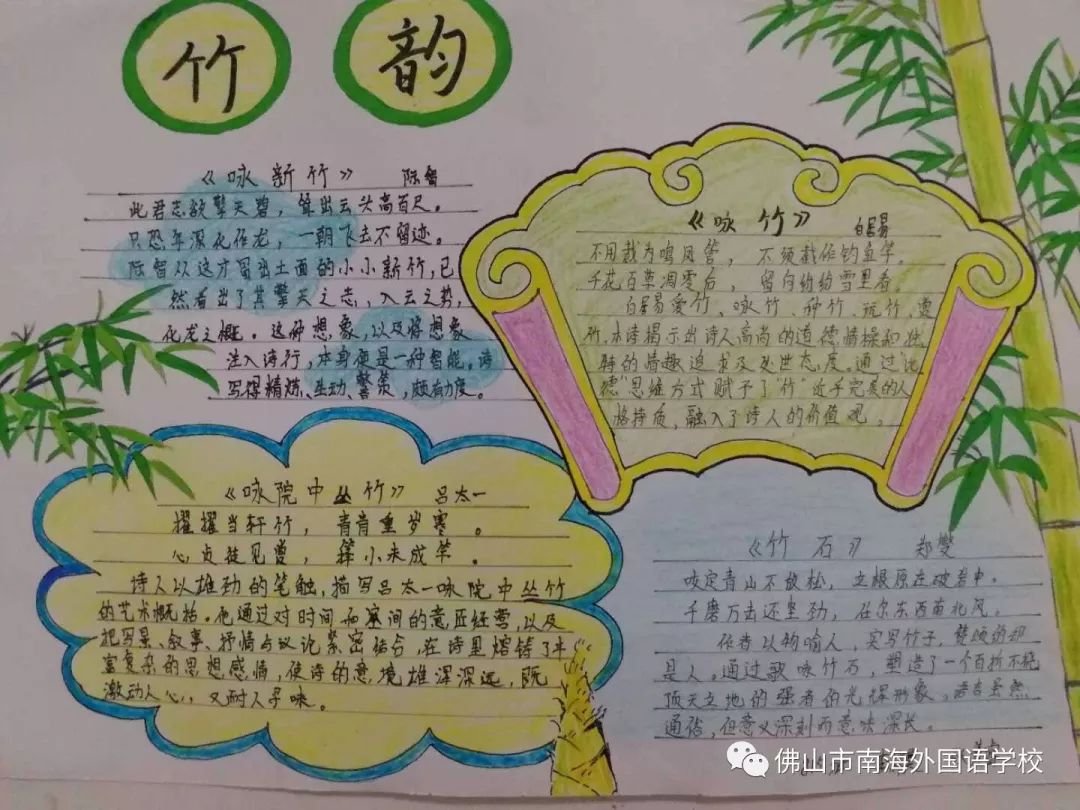 竹 韵
《咏新竹》 陈智
此君志欲擎天碧，耸出云头高百尺。
只恐年深化作龙，一朝飞去不留迹。
陈智从这才冒出土面的小小新竹，已
然看出了其擎天之志、入云之势、
化龙之概。这种想象，以及将想象
注入诗行，本身便是一种智能。诗
写得精炼、生动、警策，颇有力度。
《咏竹》 白居易
不用裁为鸣凤管，不须截作钓鱼竿。
千花百草凋零后，留向纷纷雪里看。
白居易爱竹、咏竹、种竹、玩竹、
竹，本诗揭示出诗人高尚的道德情操和独
特的情趣追求及处世态度。通过"比
德"思维方式赋予了"竹"近乎完美的人
格特质，融入了诗人的价值观。
《咏院中丛竹》 吕太一
擢擢当轩竹，青青重岁寒。
心贞徒见赏，箨小未成竿。
诗人以雄劲的笔触，描写吕太一咏院中丛竹
的艺术概括。他通过对时间和空间的意匠经营，以及
把写景、叙事、抒情与议论紧密结合，在诗里熔铸了丰
富复杂的思想感情，使诗的意境雄浑深远，既
激动人心，又耐人寻味。
《竹石》 郑燮
咬定青山不放松，立根原在破岩中。
千磨万击还坚劲，任尔东西南北风。
作者以物喻人，实写竹子，赞颂的却
是人。通过歌咏竹石，塑造了一个百折不挠
顶天立地的强者的光辉形象，语言虽然
通俗，但意义深刻而意味深长。
佛山市南海外国语学校